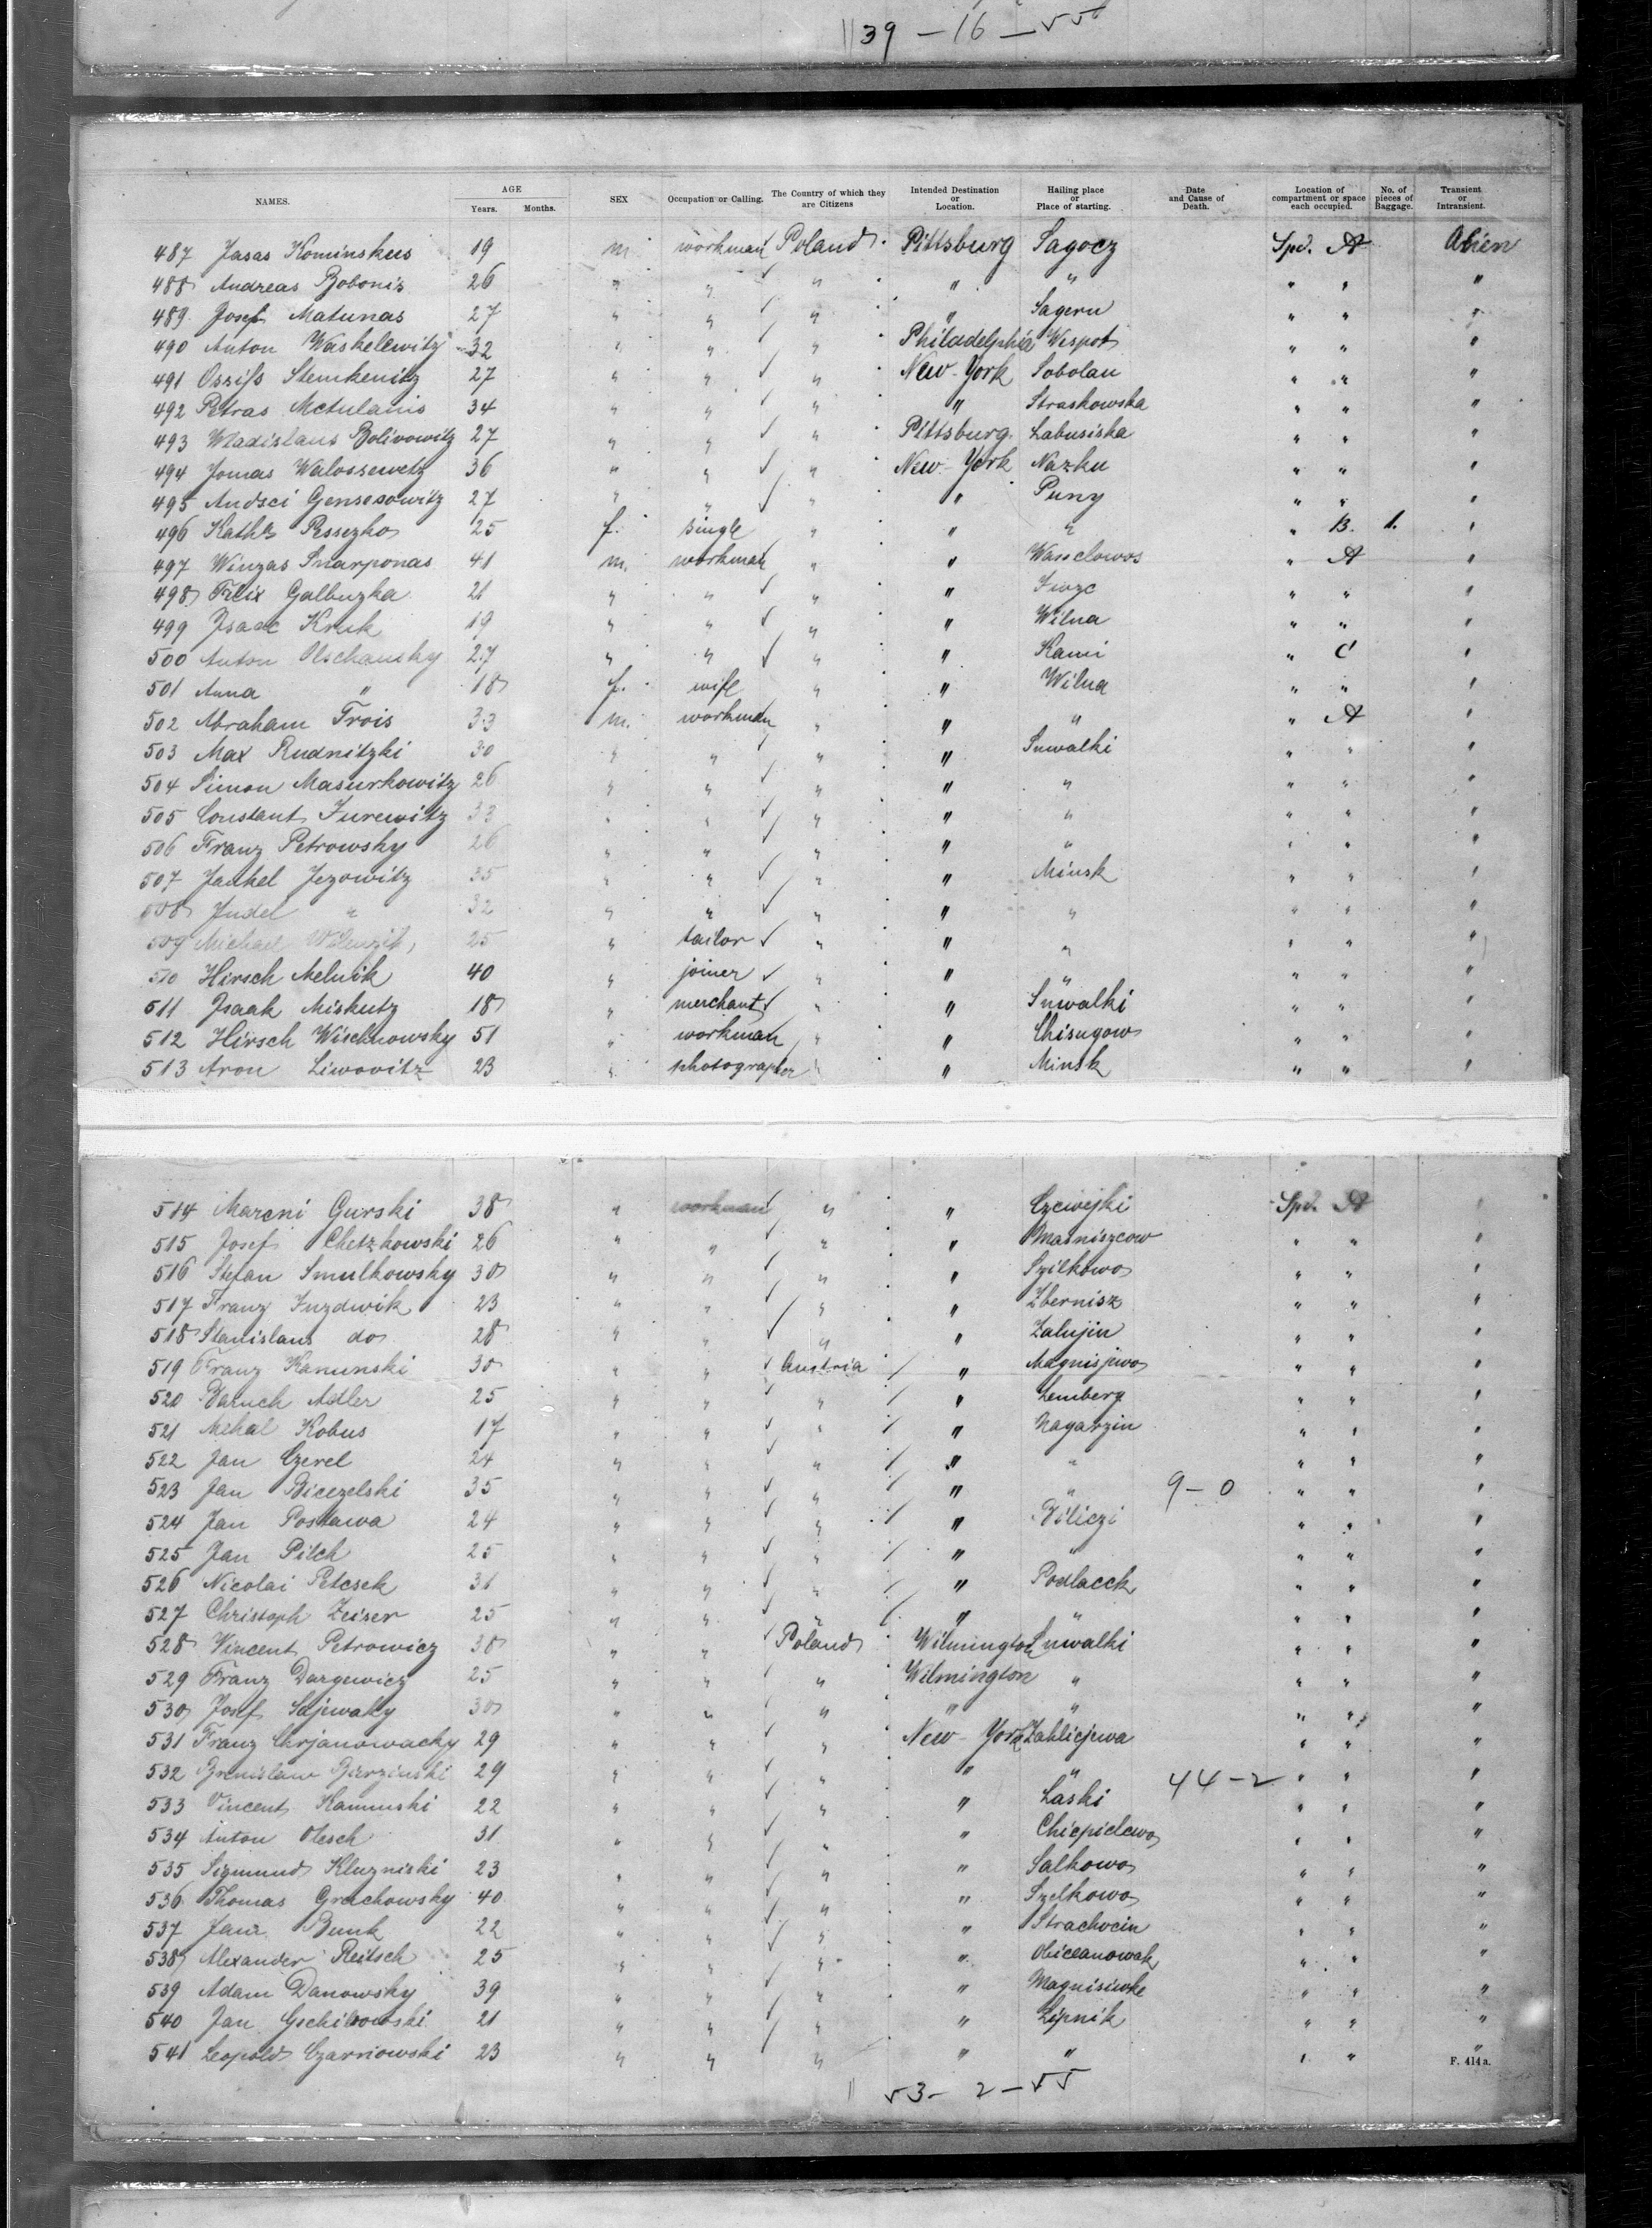 1139 - 16 - 55
NAMES. AGE Years. Months. SEX Occupation or Calling. The Country of which they are Citizens Intended Destination or Location. Hailing place or Place of starting. Date and Cause of Death. Location of compartment or space each occupied. No. of pieces of Baggage. Transient or Intransient.
487 Jasas Kominskus 19 m. workman Poland Pittsburg Sagocz Spd. A Alien
488 Andreas Bobonis 26 " " " " " " " "
489 Josef Matunas 27 " " " " Sagern " " "
490 Anton Waskelewitz 32 " " " Philadelphia Wispot " " "
491 Ossifs Stemkenitz 27 " " " New-York Sobolan " " "
492 Petras Metulanis 34 " " " " Straskowska " " "
493 Wladislaus Bolivowitz 27 " " " Pittsburg Labusiska " " "
494 Jomas Walossewetz 36 " " " New-York Nazku " " "
495 Andsci Gensesowitz 27 " " " " Puny " " "
496 Kathr Pessezko 25 f. single " " " " B. 1. "
497 Winzas Snarponas 41 m. workman " " Wasselowos " A "
498 Felix Galbuzka 21 " " " " " " "
499 Isaac Kruk 19 " " " " Wilna " " "
500 Anton Olschansky 27 " " " " Kami " C "
501 Anna " 18 f. wife " " Wilna " " "
502 Abraham Trois 33 m. workman " " " " A "
503 Max Rudnitzki 30 " " " " Suwalki " " "
504 Simon Masurkowitz 26 " " " " " " " "
505 Constant Jurewitz 33 " " " " " " " "
506 Franz Petrowsky 26 " " " " " " " "
507 Jankel Jezowitz 35 " " " " Minsk " " "
508 Judel " 32 " " " " " " " "
509 Michael 25 " tailor " " " " " "
510 Hirsch Melnik 40 " joiner " " " " " "
511 Isaak Miskutz 18 " merchant " " Suwalki " " "
512 Hirsch Wischnowsky 51 " workman " " Chisugow " " "
513 Aron Liwovitz 23 " photographer " " Minsk " " "
514 Marcni Gurski 38 " workman " " Czcwejki Spd. A "
515 Josef Chetzkowski 26 " " " " Masniszcow " " "
516 Stefan Smulkowsky 30 " " " " Szilkowo " " "
517 Franz Juzdwik 23 " " " " Zbernisz " " "
518 Stanislaus do 28 " " " " Zalujin " " "
519 Franz Kanunski 30 " " Austria " Magnisjwo " " "
520 Baruch Adler 25 " " " " Lemberg " " "
521 Mehal Kobus 17 " " " " Nagarzin " " "
522 Jan Czerel 24 " " " " " " " "
523 Jan Bicezelski 35 " " " " " 9-0 " " "
524 Jan Postawa 24 " " " " Biliczi " " "
525 Jan Pilch 25 " " " " " " " "
526 Nicolai Petesek 31 " " " " Podlacek " " "
527 Christoph Zeiser 25 " " " " " " " "
528 Vincent Petrowicz 30 " " Poland Wilmington Suwalki " " "
529 Franz Dargewicz 25 " " " Wilmington " " " "
530 Josef Sajewaky 30 " " " " " " " "
531 Franz Chrjanowacky 29 " " " New-York Zahlicjewa " " "
532 Bronislaw Bierzinski 29 " " " " " 44-2 " " "
533 Vincent Kaminski 22 " " " " Laski " " "
534 Anton Olesch 31 " " " " Chicpiclewo " " "
535 Sigmund Kluzniski 23 " " " " Salkowo " " "
536 Thomas Grachowsky 40 " " " " Szelkowo " " "
537 Jana Bunk 22 " " " " Strachocin " " "
538 Alexander Reitsch 25 " " " " Obiceanowak " " "
539 Adam Danowsky 39 " " " " Magnisiwke " " "
540 Jan Gschibowski 21 " " " " Lipnik " " "
541 Leopold Czarnowski 23 " " " " " " " "
F. 414a.
53- 2-55